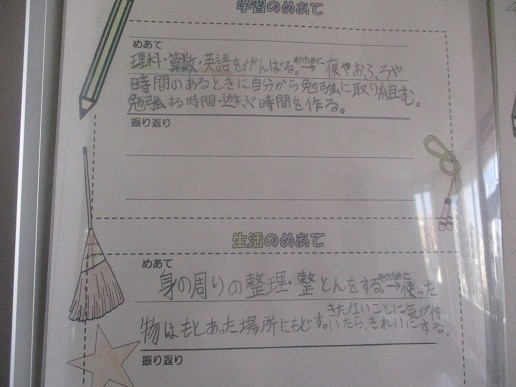 学習のめあて
めあて
理科・算数・英語をがんばる。そのために→夜やおふろや
時間のあるときに自分から勉強に取り組む。
勉強する時間・遊ぶ時間を作る。
振り返り
生活のめあて
めあて
身の周りの整理・整とんをする。そのために→使った
物はもとあった場所にもどす。きたないことに気が付
いたら、きれいにする。
振り返り